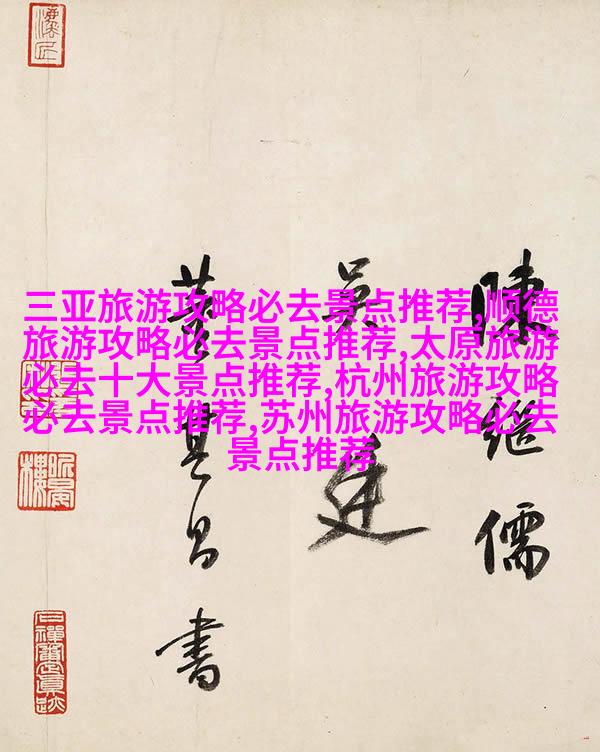 三亚旅游攻略必去景点推荐,顺德
旅游攻略必去景点推荐,太原旅游
必去十大景点推荐,杭州旅游攻略
必去景点推荐,苏州旅游攻略必去
景点推荐
陳繼儒
吳廷
董其昌書